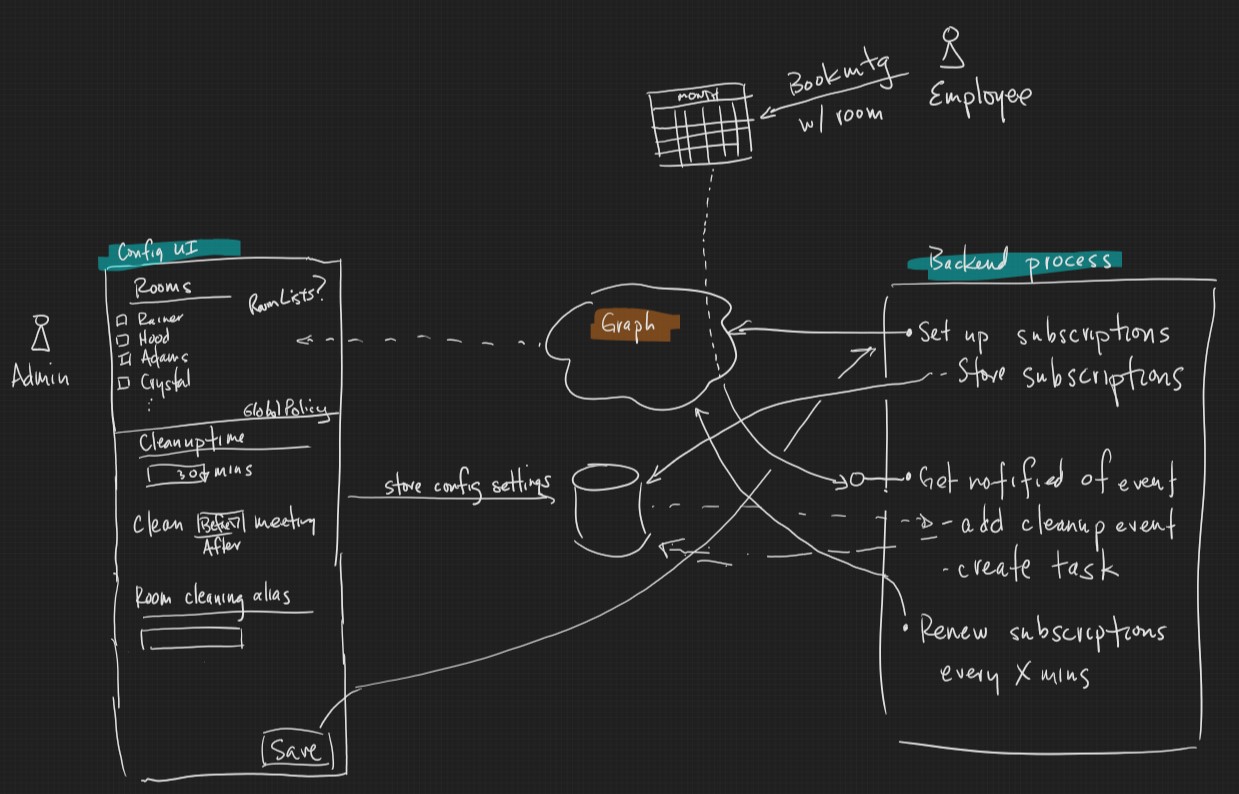 Book mtg
w/ room
Employee
MONTH
Config UI
Rooms
Room Lists?
Rainer
Hood
Adams
Crystal
Global Policy
Cleanup time
30 mins
Clean Before meeting
After
Room cleaning alias
Save
Admin
Graph
store config settings
Backend process
• Set up subscriptions
- Store subscriptions
• Get notified of event
- add cleanup event
- create task
• Renew subscriptions
every X mins